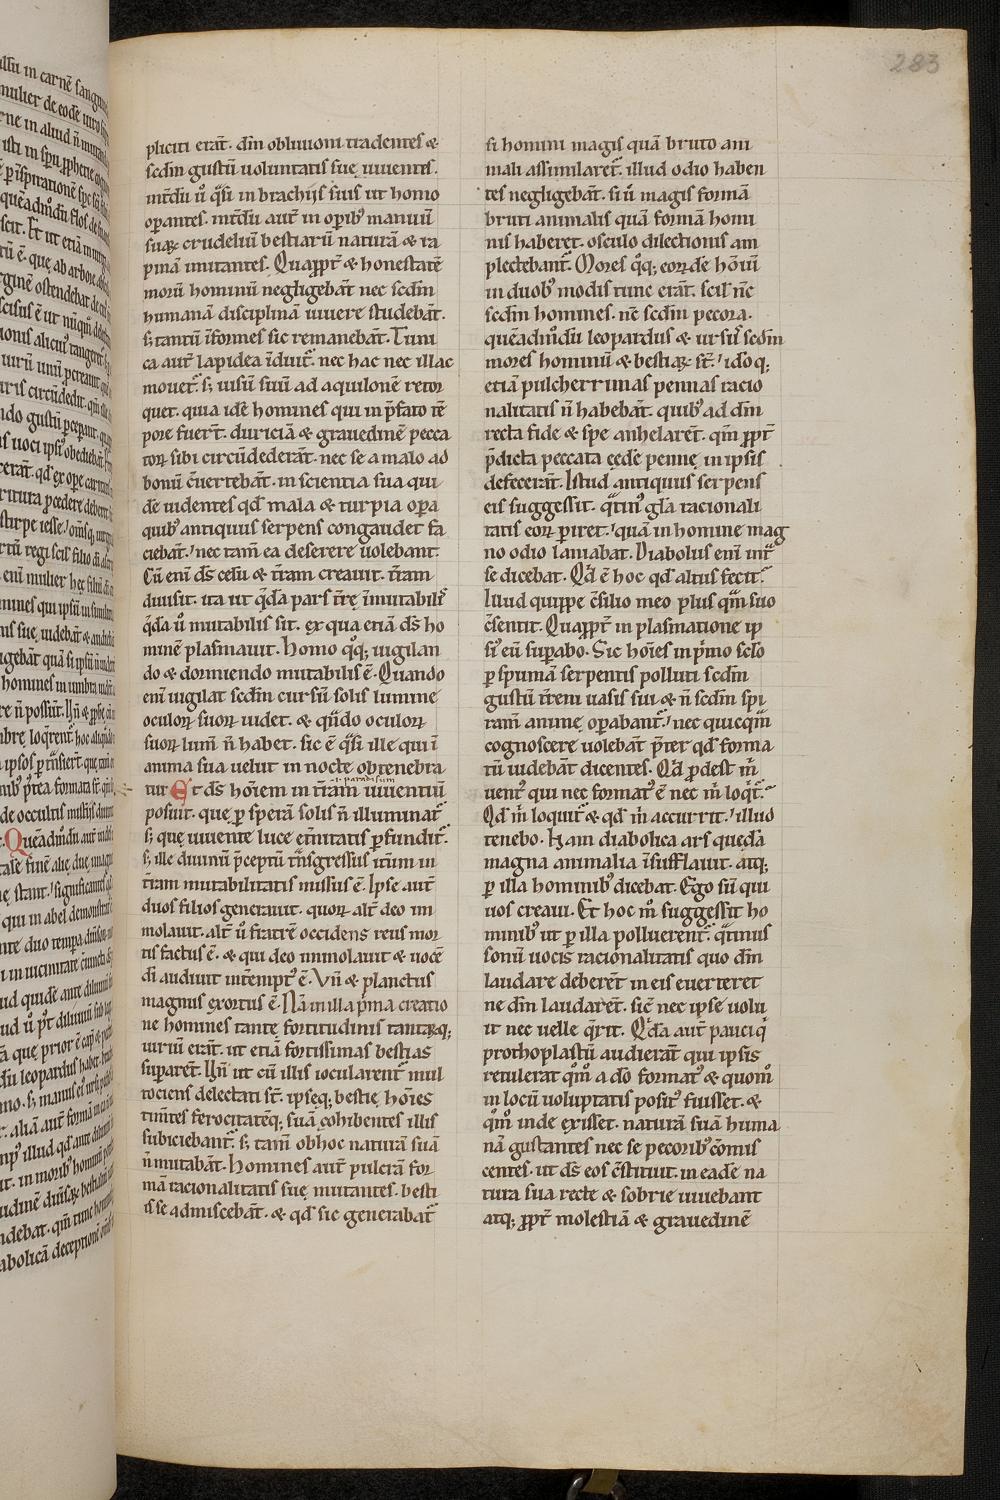 283
pliciti erāt. dm̄ obliuioni tradentes &
scdm̄ gustū uoluntatis sue uiuentes.
int̄dū ū q̄si in brachijs suis ut homo
op̄antes. int̄dū aut̄ in opib᾽ manuū
suaꝝ crudeliū bestiarū naturā & ra
pinā imitantes. Quapp̄t & honestatē
morū hominū negligebāt nec scdm̄
humanā disciplinā uiuere studebāt.
s; tantū īformes sic remanebāt. Tuni
ca aut̄ lapidea īduit̄. nec hac nec illac
mouet̄. s; uisū suū ad aquilonē retor
quet. quia idē homines qui in p̄fato tē
pore fuer̄t. duriciā & grauedinē pecca
toꝝ sibi circūdederāt. nec se a malo ad
bonū c̄uertebāt. in scientia sua qui
dē uidentes qd̄ mala & turpia opa
quib᾽ antiquus serpens congaudet fa
ciebāt.᾽ nec tam̄ ea deserere uolebant.
Cū eni ds̄ celū & t̄ram creauit. t̄ram
diuisit. ita ut q̄da pars tr̄e īmutabilis̄
q̄da ū mutabilis sit. ex qua etiā ds̄ ho
minē plasmauit. Homo q̊q; uigilan
do & dormiendo mutabilis ē. Quando
eni uigilat scdm̄ cursū solis lumine
oculoꝝ suoꝝ uidet. & qn̄do oculoꝝ
suoꝝ lum̄ n̄ habet. sic ē q̄si ille qui ī
anima sua uelut in nocte obtenebra
.i. paradisum
tur Et ds̄ hoīem in t̄ram uiuentiū
posuit. que p sperā solis n̄ illuminat̄
s; que uiuente luce et̄nitatis pfundit̄.
s; ille diuinū p̄ceptū t̄nsgressus it̄um in
t̄ram mutabilitatis missus ē. Ipse aut̄
duos filios generauit. quoꝝ alt̄ deo im
molauit. alt̄ ū fratrē occidens reus mor
tis factus ē. & qui deo immolauit & uocē
di audiuit int̄empt᾽ ē. Vn̄ & planctus
magnus exortus ē. Nā in illa p̄ma creatio
ne homines tante fortitudinis tantaꝝq;
uiriū erāt. ut etiā fortissimas bestias
sup̄arēt. Un̄ ut cū illis iocularent̄ mul
tociens delectati st̄. ipseq; bestie hoīes
tim̄tes ferocitatēq; suā cohibentes illis
subiciebant̄. s; tam̄ obhoc naturā suā
n̄ mutabāt. Homines aut̄ pulcrā for
mā racionalitatis sue mutantes. besti
is se admiscebāt. & qd̄ sic generabat̄
si homini magis quā bruto ani
mali assimilaret̄. illud odio haben
tes negligebāt. si ū magis formā
bruti animalis quā formā homi
nis haberet. osculo dilectionis am
plectebant̄. Mores q̊q; eoꝝde hōiū
in duob᾽ modis tunc erāt. scil̄ nc̄
scdm̄ homines. nc̄ scdm̄ pecora.
quēadmdū leopardus & ursus̄ scdm̄
mores hominū & bestiaꝝ st̄.᾽ idoq;
etiā pulcherrimas pennas racio
nalitatis n̄ habebāt. quib᾽ ad dm̄
recta fide & spe anhelarēt. qm̄ ppt̄
p̄dicta peccata eede penne in ipsis
defecerāt. Istud antiquus serpens
eis suggessit. q̄tin᾽ gl̄a racionali
tatis eoꝝ piret.᾽ quā in homine mag
no odio laniabat. Diabolus eni int̄
se dicebat. Qd̄ ē hoc qd̄ altus fecit᾽
Illud quippe c̄silio meo plus qm̄ suo
c̄sentit. Quapp̄t in plasmatione ip
si᾽ eū supabo. Sic hoīes in p̄mo sclo
p spumā serpentis polluti scdm̄
gustū t̄reni uasis sui & n̄ scdm̄ spi
ram̄ anime op̄abant̄.᾽ nec quicqm̄
cognoscere uolebāt p̄ter qd̄ forma
tū uidebāt dicentes. Qd̄ pdest m̄
uent᾽ qui nec format᾽ ē nec m̄ loqt̄᾽
Qd̄ m̄ loquit̄ & qd̄ m̄ accurrit.᾽ illud
tenebo. Nam diabolica ars quedā
magna animalia īsufflauit. atq;
p illa hominib᾽ dicebat. Ego sū qui
uos creaui. Et hoc m̊ suggessit ho
minib᾽ ut p illa polluerent̄. q̄tinus
sonū uocis racionalitatis quo dm̄
laudare deberēt in eis euerteret
ne dm̄ laudarēt. sic̄ nec ipse uolu
it nec uelle q̄rit. Qd̄a aut̄ pauci q̄
prothoplastū audierāt qui ipsis
retulerat qm̊ a do format᾽ & quom̊
in locū uoluptatis posit᾽ fuisset. &
qm̊ inde exisset. naturā suā huma
nā gustantes nec se pecorib᾽ c̄mis
centes. ut ds̄ eos c̄stituit. in eade na
tura sua recte & sobrie uiuebant
atq; ppt̄ molestiā & grauedinē